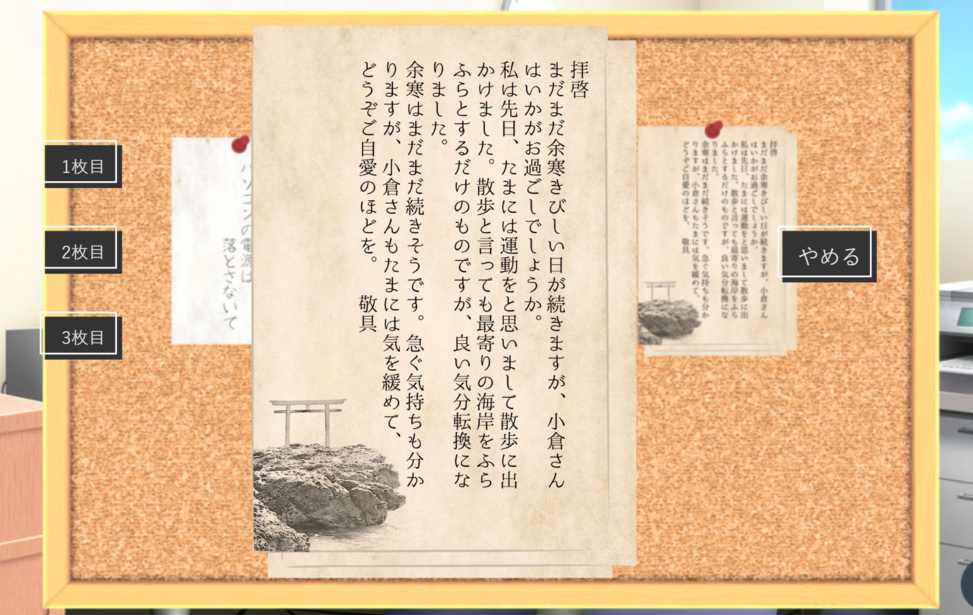 拝啓
まだまだ余寒きびしい日が続きますが、小倉さん
はいかがお過ごしでしょうか。
私は先日、たまには運動をと思いまして散歩に出
かけました。散歩と言っても最寄りの海岸をふら
ふらとするだけのものですが、良い気分転換にな
りました。
余寒はまだまだ続きそうです。急ぐ気持ちも分か
りますが、小倉さんもたまには気を緩めて、
どうぞご自愛のほどを。　敬具
1枚目
2枚目
3枚目
パソコンの電源は
落とさないで
拝啓
まだまだ余寒きびしい日が続きますが、小倉さん
はいかがお過ごしでしょうか。
私は先日、たまには運動をと思いまして散歩に出
かけました。散歩と言っても最寄りの海岸をふら
ふらとするだけのものですが、良い気分転換にな
りました。
余寒はまだまだ続きそうです。急ぐ気持ちも分か
りますが、小倉さんもたまには気を緩めて、
どうぞご自愛のほどを。　敬具
やめる